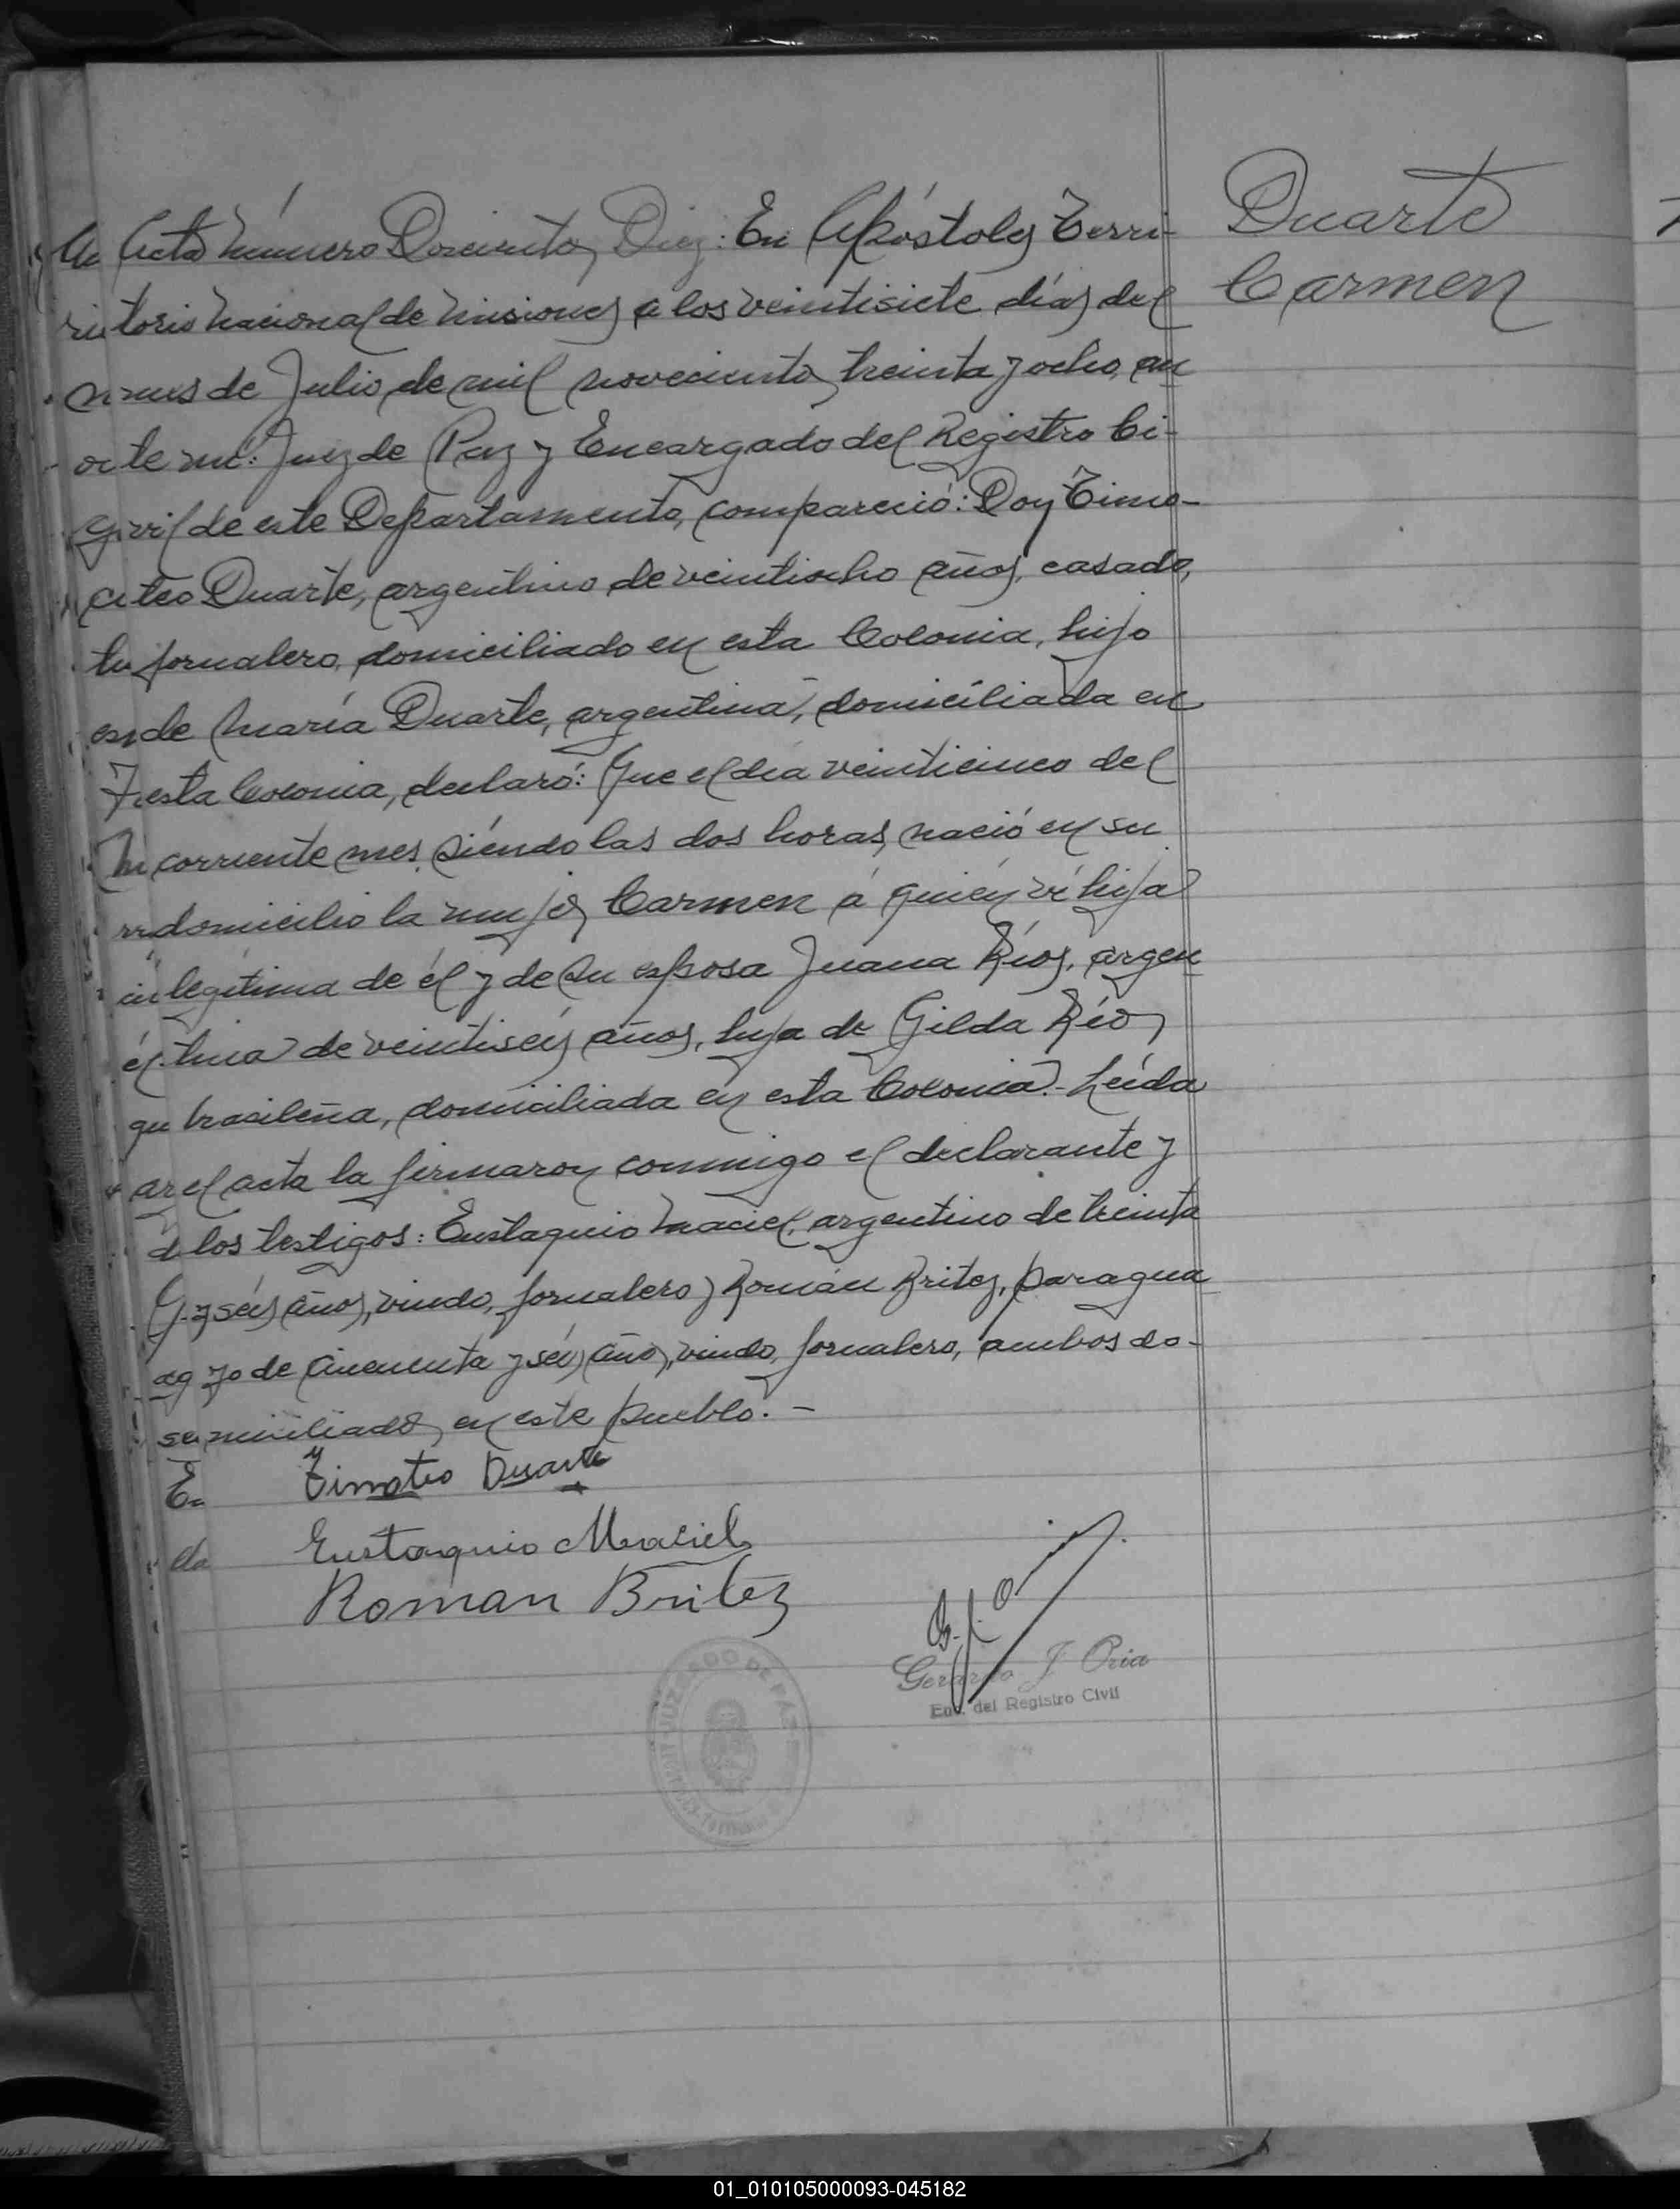 Duarte
Carmen
Acta número Doscientos Diez: En Apóstoles Terri-
torio Nacional de Misiones a los veintisiete días del
mes de Julio de mil novecientos treinta y ocho, an
te mí: Juez de Paz y Encargado del Registro Ci-
vil de este Departamento, compareció: Don Timo-
teo Duarte, argentino de veintiocho años, casado,
jornalero, domiciliado en esta Colonia, hijo
de María Duarte, argentina, domiciliada en
esta Colonia, declaró: Que el día veinticinco del
corriente mes, siéndo las dos horas, nació en su
domicilio la mujer Carmen á quién ví hija
legítima de él y de su esposa Juana Ríos, argen
tina de veintiseis años, hija de Gilda Ríos,
brasileña, domiciliada en esta Colonia.- Leída
el acta la firmaron conmigo el declarante y
los testigos: Eustaquio Maciel, argentino de treinta
y seis años, viudo, jornalero y Román Britez, paragua
yo de cincuenta y seis años, viudo, jornalero, ambos do-
miciliados en este pueblo.-
Timoteo Duarte
Eustaquio Maciel
Roman Britez
Gerardo J. Oria
Enc. del Registro Civil
JUZGADO DE PAZ
01_010105000093-045182